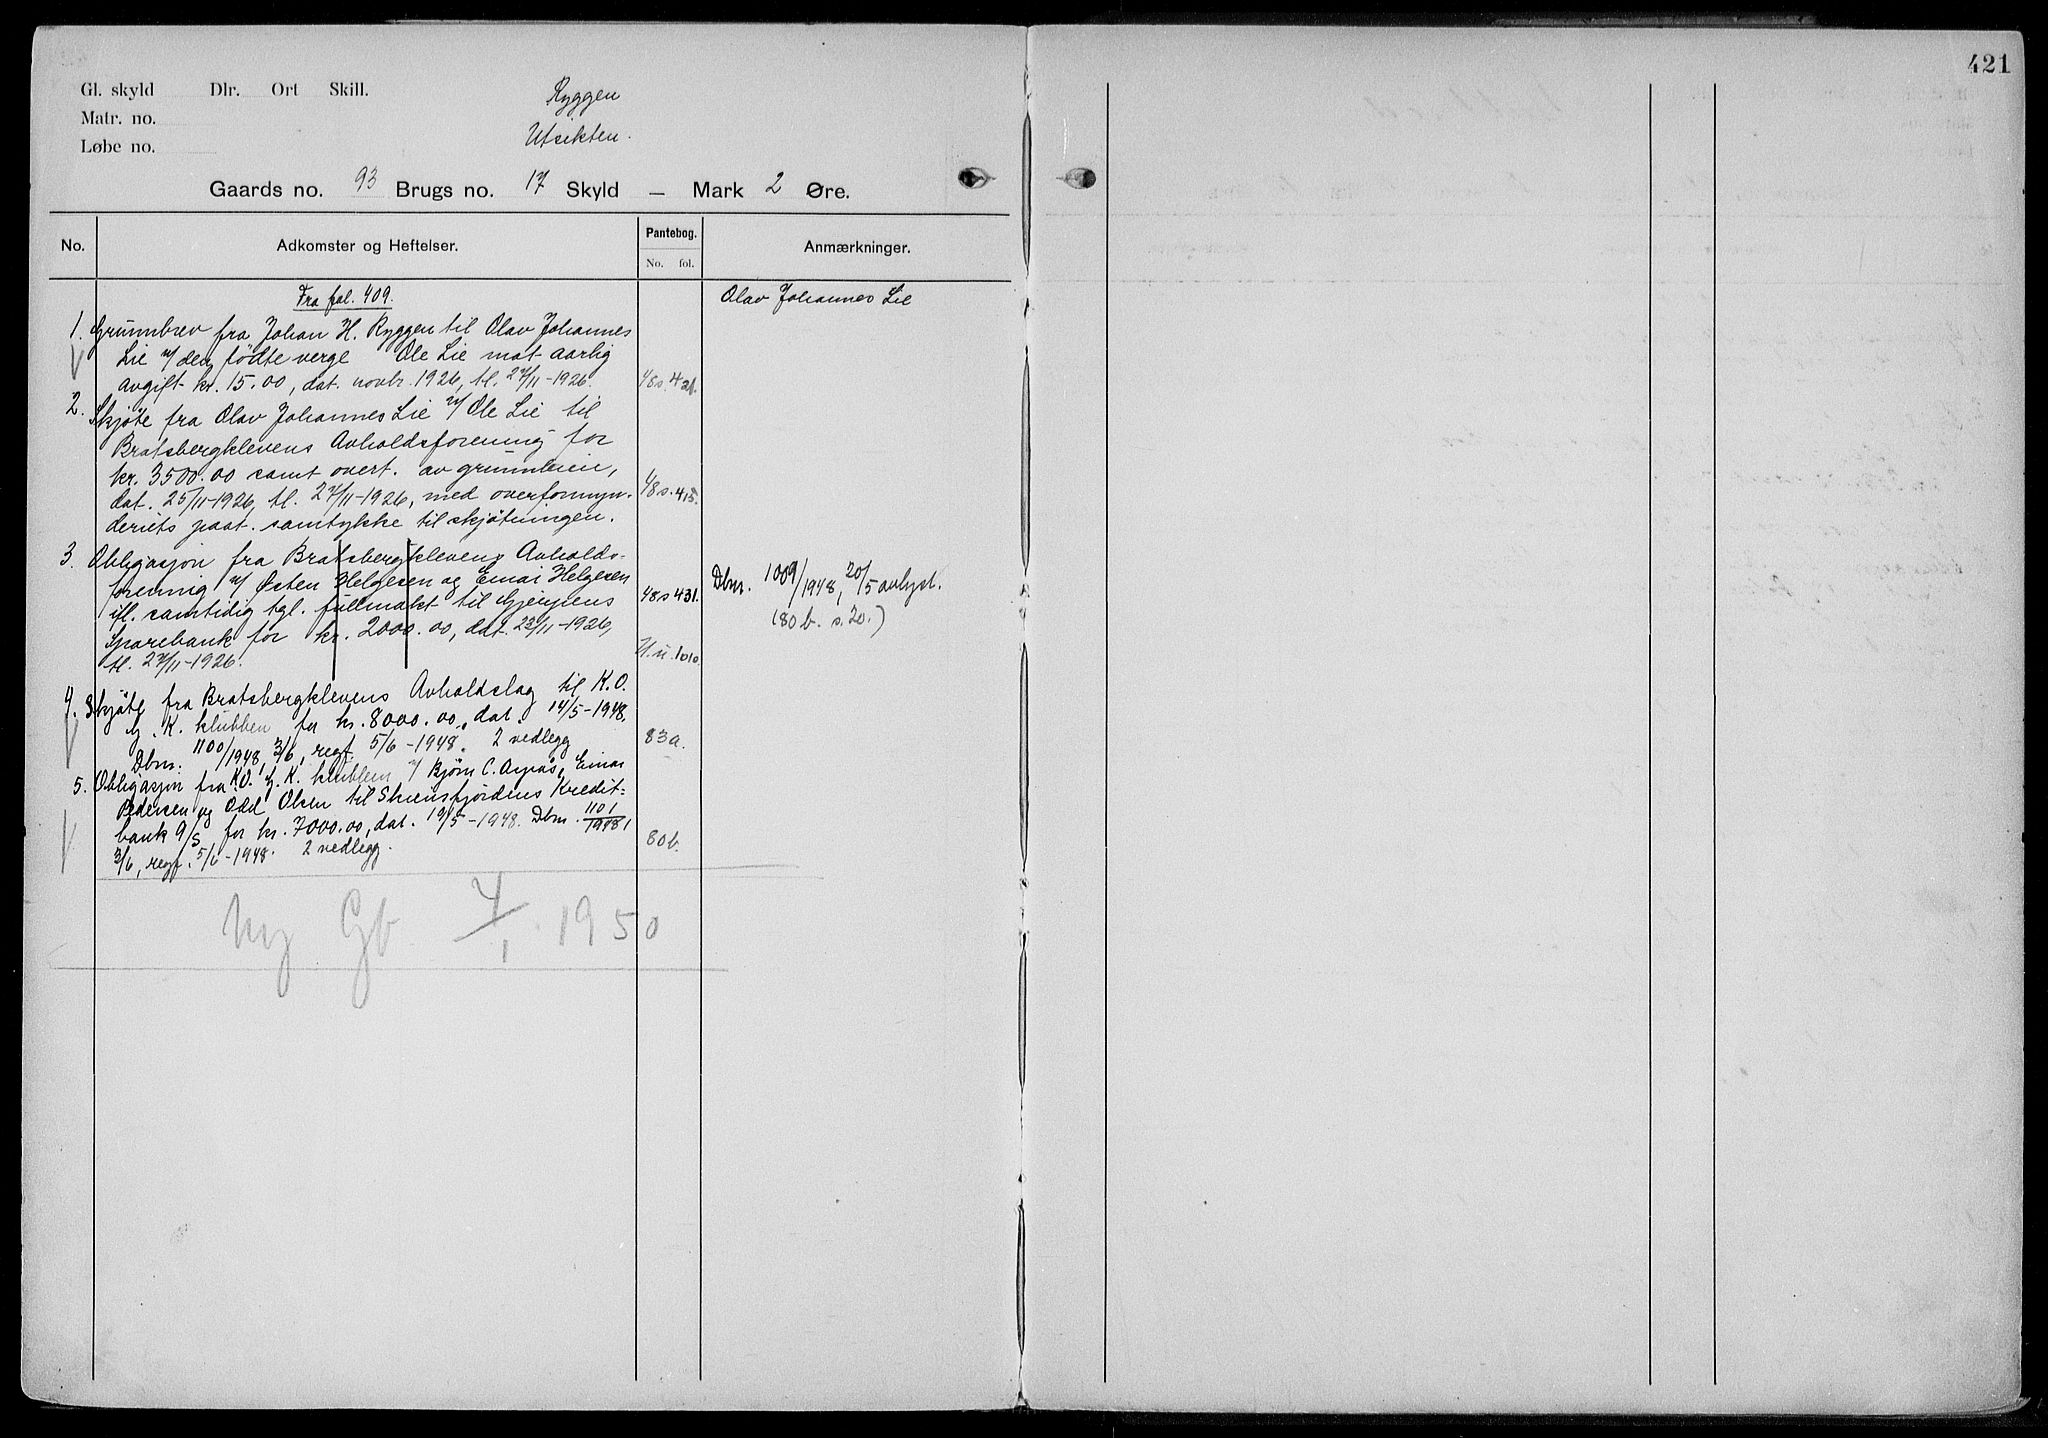 421
Gl. skyld Dlr. Ort Skill.
Matr. no.
Løbe no.
Ryggen
Utsikten.
Gaards no. 93 Brugs no. 17 Skyld — Mark 2 Øre.
No. Adkomster og Heftelser. Pantebog. No. fol. Anmærkninger.
Fra fol. 409.
Olav Johannes Lie
1. Grunnbrev fra Johan H. Ryggen til Olav Johannes
Lie v/ den fødte verge Ole Lie mot aarlig
avgift kr. 15.00, dat. novbr. 1926, tl. 27/11-1926. 48 s. 421.
2. Skjøte fra Olav Johannes Lie v/ Ole Lie til
Bratsbergklevens Avholdsforening for
kr. 3500.00 samt overt. av grunnleien,
dat. 25/11-1926, tl. 27/11-1926, med overformyn- 48 s. 415.
deriets paat. samtykke til skjøtningen.
3. Obligasjon fra Bratsbergklevens Avholds-
forening v/ Østen Helgesen og Einar Helgesen
ifl. samtidig tgl. fullmakt til Gjerpens 48 s 431.
Sparebank for kr. 2000.00, dat. 22/11-1926,
tl. 27/11-1926. 1010.
Dbnr. 1009/1948, 20/5 avlyst.
(80 b. s. 20.)
4. Skjøte fra Bratsbergklevens Avholdslag til K.O.
G. K. klubben for kr. 8000.00, dat. 14/5-1948.
Dbnr. 1100/1948, 3/6, regf. 5/6-1948. 2 vedlegg 83a.
5. Obligasjon fra K.O. G. K. klubben v/ Bjørn C. Einar
Pedersen og Odd Olsen til Skiensfjordens Kredit-
bank A/S for kr. 7000.00, dat. 19/5-1948. Dbnr. 1101/1948,
3/6, regf. 5/6-1948. 2 vedlegg. 80b.
Ny Gb 4/1 1950